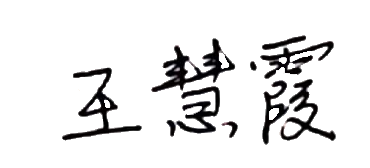 王慧霞